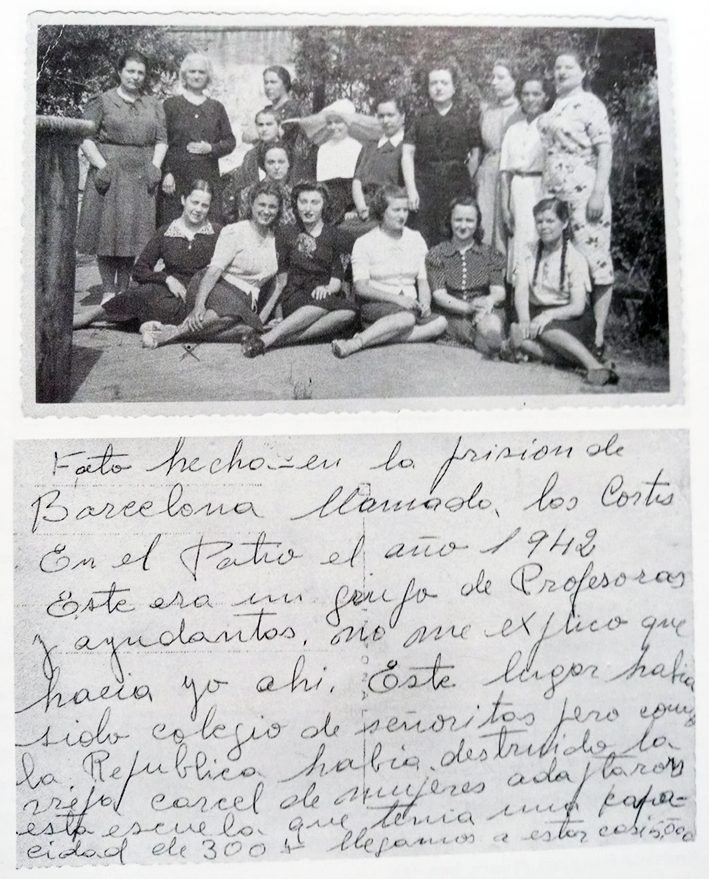 Foto hecha en la prision de
Barcelona llamada, las Corts
En el Patio el año 1942
Este era un grupo de Profesoras
y ayudantas, no me explico que
hacia yo ahi. Este lugar habia
sido colegio de señoritas pero como
la Republica habia destruido la
vieja carcel de mujeres adaptaron
esta escuela que tenia una capa-
cidad de 300 y llegamos a estar casi 5,000